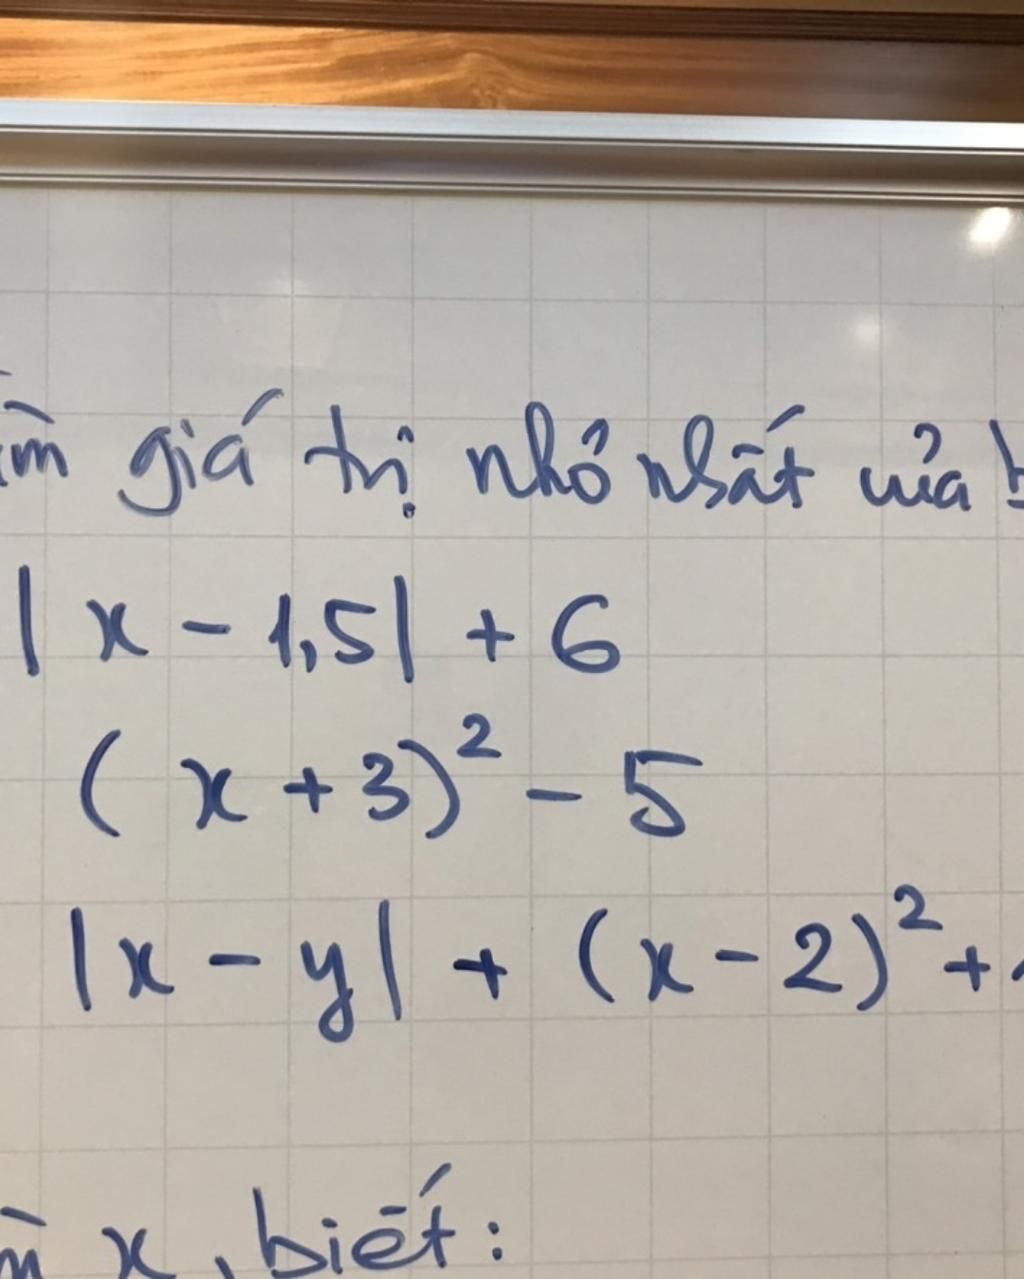 giá trị nhỏ nhất của
|x - 1,5| + 6
(x + 3)² - 5
|x - y| + (x - 2)² +
x, biết: